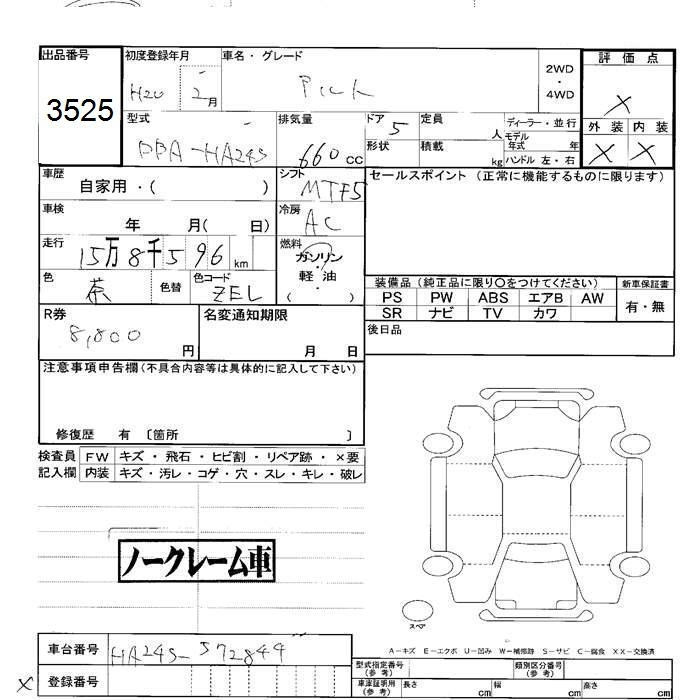 出品番号
3525
初度登録年月
H20 2月
車名・グレード
Pick
2WD
・
4WD
評価点
X
外装 内装
X X
型式
PBA-HA24S
排気量
660cc
ドア
5
形状
定員
人
積載
kg
ディーラー・並行
モデル年式 年
ハンドル 左・右
車歴
自家用・( )
シフト
MTF5
セールスポイント (正常に機能するものに限ります)
車検
年 月( 日)
冷房
AC
走行
15万8千596km
燃料
ガソリン
・
軽油
( )
色
茶
色替
色コード
ZEL
装備品 (純正品に限り〇をつけてください)
PS PW ABS エアB AW
SR ナビ TV カワ
新車保証書
有・無
R券
8,800
円
名変通知期限
月 日
後日品
注意事項申告欄(不具合内容等は具体的に記入して下さい)
修復歴 有 〔箇所 〕
検査員
記入欄
FW キズ・飛石・ヒビ割・リペア跡・×要
内装 キズ・汚レ・コゲ・穴・スレ・キレ・破レ
ノークレーム車
スペア
A-キズ E-エクボ U-凹み W-補修跡 S-サビ C-腐食 XX-交換済
車台番号
HA24S-572844
X
登録番号
型式指定番号
(参考)
類別区分番号
(参考)
車庫証明用
(参考)
長さ cm
幅 cm
高さ cm